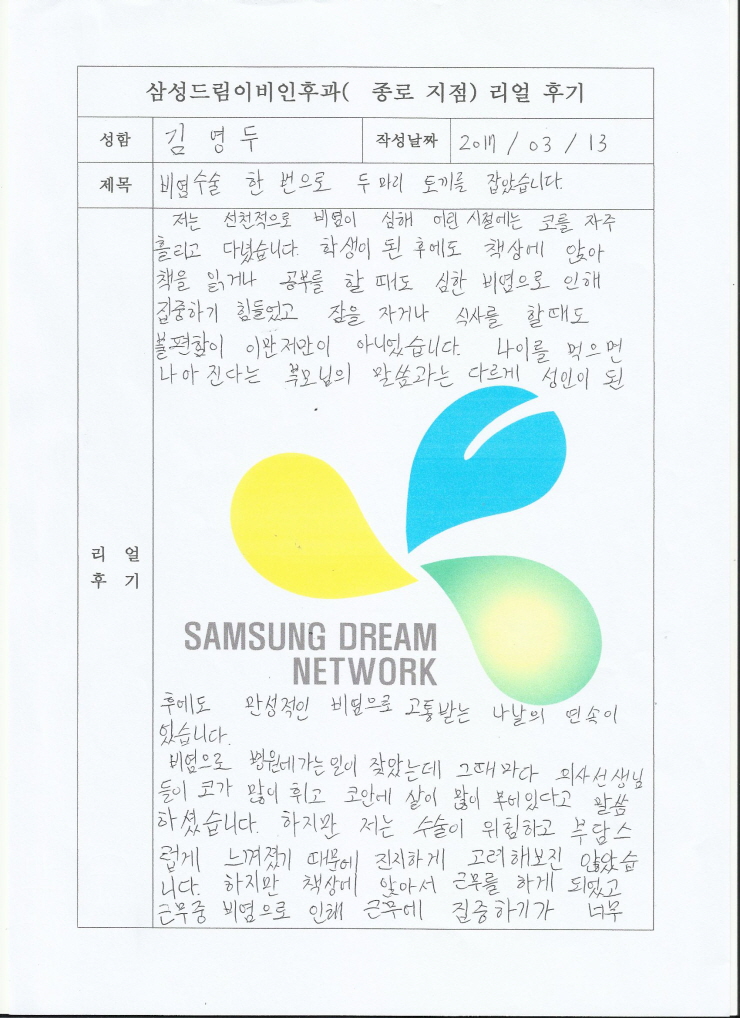 삼성드림이비인후과( 종로 지점) 리얼 후기
성함 김명두 작성날짜 2017 / 03 / 13
제목 비염수술 한 번으로 두마리 토끼를 잡았습니다.
저는 선천적으로 비염이 심해 어린 시절에는 코를 자주
흘리고 다녔습니다. 학생이 된 후에도 책상에 앉아
책을 읽거나 공부를 할 때도 심한 비염으로 인해
집중하기 힘들었고 잠을 자거나 식사를 할때도
불편함이 이만저만이 아니었습니다. 나이를 먹으면
나아진다는 부모님의 말씀과는 다르게 성인이 된
리 얼
후 기
SAMSUNG DREAM
NETWORK
후에도 만성적인 비염으로 고통받는 나날의 연속이
었습니다.
비염으로 병원에가는일이 잦았는데 그때마다 의사선생님
들이 코가 많이 휘고 코안에 살이 많이 부어있다고 말씀
하셨습니다. 하지만 저는 수술이 위험하고 부담스
럽게 느껴졌기 때문에 진지하게 고려해보진 않았습
니다. 하지만 책상에 앉아서 근무를 하게 되었고
근무중 비염으로 인해 근무에 집중하기가 너무